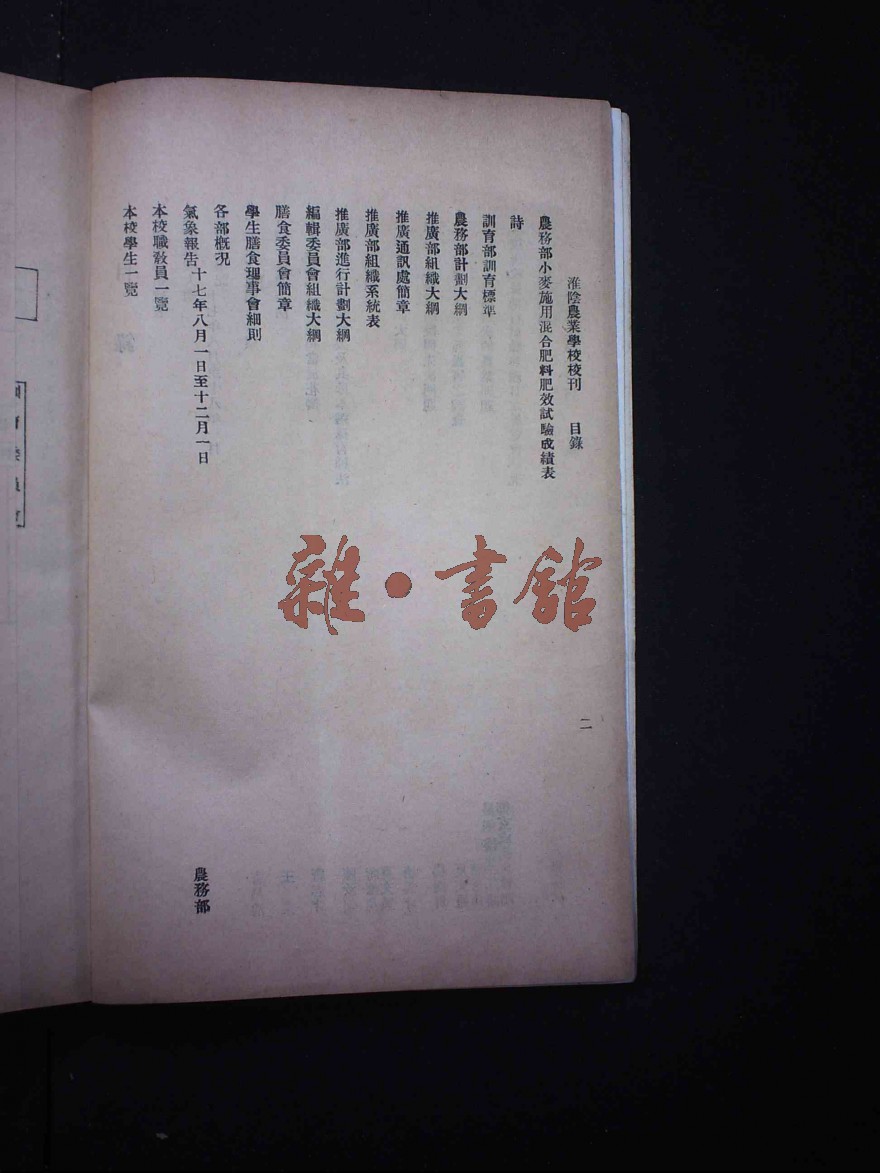 淮陰農業學校校刊　目錄
二
農務部小麥施用混合肥料肥效試驗成績表
詩
訓育部訓育標準
農務部計劃大綱
推廣部組織大綱
推廣通訊處簡章
推廣部組織系統表
推廣部進行計劃大綱
編輯委員會組織大綱
膳食委員會簡章
學生膳食理事會細則
各部概況
氣象報告十七年八月一日至十二月一日　農務部
本校職教員一覽
本校學生一覽
雜·書館